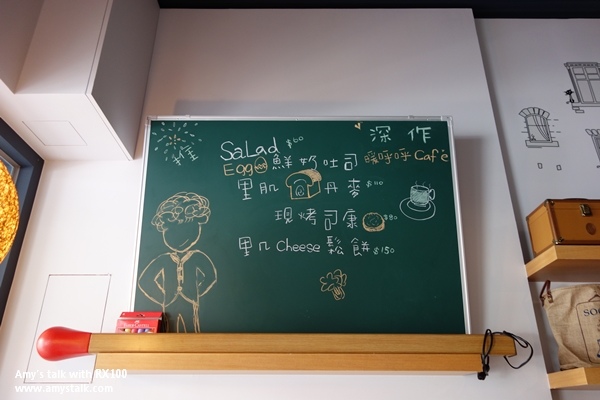 深作
Salad $60
Egg 鮮奶吐司 暖呼呼 Cafe
里肌 丹麥 $110
現烤司康 $80
里肌 Cheese 鬆餅 $150
Amy's talk with RX100
www.amystalk.com